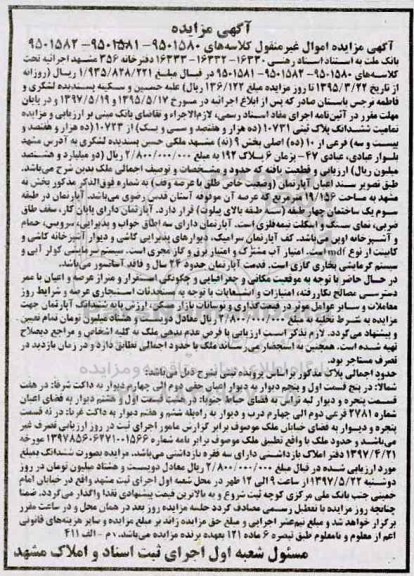 آگهی مزایده
آگهی مزایده اموال غیرمنقول کلاسه‌های ۹۵۰۱۵۸۰- ۹۵۰۱۵۸۱- ۹۵۰۱۵۸۲
بانک ملت به استناد اسناد رهنی ۱۶۳۳۰- ۱۶۳۳۲- ۱۶۳۳۳ دفترخانه ۳۵۶ مشهد اجرائیه تحت
کلاسه‌های ۹۵۰۱۵۸۰- ۹۵۰۱۵۸۲- ۹۵۰۱۵۸۱ در قبال مبلغ ۱/۹۳۵/۸۲۸/۲۲۱ ریال (روزانه
از تاریخ ۱۳۹۵/۳/۲۲ تا روز مزایده مبلغ ۱۳۶/۱۲۲ ریال) علیه حسین و سکینه پسندیده لشگری و
فاطمه نرجس باستان صادر که پس از ابلاغ اجرائیه در مورخ ۱۳۹۵/۵/۱۷ و ۱۳۹۷/۵/۱۹ و در پایان
مهلت مقرر در آئین‌نامه اجرای مفاد اسناد رسمی، لازم‌الاجراء و تقاضای بانک مبنی بر ارزیابی و مزایده
تمامیت ششدانگ پلاک ثبتی ۱۰۷۳۱ (ده هزار و هفتصد و سی و یک) از ۱۰۷۲۳ (ده هزار و هفتصد و
بیست و سه) فرعی از ۱۰ (ده) اصلی بخش ۹ (نه) مشهد ملکی حسن پسندیده لشگری به آدرس مشهد
بلوار عبادی، عبادی ۴۷- پژمان ۶ پلاک ۱۹۴ به مبلغ ۲/۸۰۰/۰۰۰/۰۰۰ ریال (دو میلیارد و هشتصد
میلیون ریال) ارزیابی و قطعیت یافته که حدود و مشخصات و توصیف اجمالی ملک بدین شرح می‌باشد.
طبق تصویر سند اعیان آپارتمان (وضعیت خاص طلق با عرصه وقف) به شماره فوق‌الذکر مذکور بخش نه
مشهد به مساحت ۱۹/۱۵۶ مترمربع که عرصه آن موقوفه آستان قدس رضوی می‌باشد. آپارتمان در طبقه
سوم یک ساختمان چهار طبقه (سه طبقه بالای پیلوت) قرار دارد. آپارتمان دارای پایان کار، سقف طاق
ضربی، نمای سنگ و اسکلت نیمه فلزی است. آپارتمان دارای سه اطاق خواب و پذیرایی، سرویس، حمام
و آشپزخانه اوپن می‌باشد. کف آپارتمان سرامیک، دیوارهای پذیرایی کاشی و دیوار آشپزخانه کاشی و
کابینت از نوع mdf است. امتیاز آب مشترک و امتیاز برق و گاز مجزی است. سیستم سرمایشی کولر آبی و
سیستم گرمایشی بخاری گازی است. قدمت آپارتمان حدود ۲۴ سال و فاقد آسانسور می‌باشد.
در حال حاضر با توجه به موقعیت مکانی و جغرافیایی و چگونگی استقرار و متراژ عرصه و اعیان با ممر
دسترسی مصالح بکاررفته، امتیازات و انشعابات با توجه به مستحدثات استیجاری عرصه و شرایط روز
معاملات و سایر عوامل موثر در قیمت‌گذاری و نوسانات بازار مسکن، ارزش پایه ششدانگ آپارتمان جهت
مزایده به شرط تخلیه به مبلغ ۲/۸۰۰/۰۰۰/۰۰۰ ریال معادل دویست و هشتاد میلیون تومان تمام تعیین
و پیشنهاد می‌گردد. لازم بذکر است ارزیابی با فرض عدم بدهی ملک به کلیه اشخاص و مراجع ذیصلاح
تهیه شده است. همچنین به استحضار می‌رساند ملک با حدود اجمالی تطابق دارد و در زمان بازدید در
تصرف مستاجر بود.
حدود اجمالی پلاک مذکور براساس پرونده ثبتی بشرح ذیل می‌باشد:
شمالا: در پنج قسمت اول و پنجم دیوار به دیوار اعیان حقی دوم الی چهارم دیوار به داکت شرقا: در هفت
قسمت پنجره و دیوار لبه تراس به فضای حیاط جنوبا: در هفت قسمت اول و هفتم دیوار به فضای اعیان
شماره ۲۷۸۱ فرعی دوم الی چهارم درب و دیوار به راه‌پله ششم و هفتم دیوار به داکت غربا: در نه قسمت
پنجره و دیوار به فضای خیابان ملک موصوف برابر گزارش مامور اجرای ثبت در روز ارزیابی تصرف غیر
می‌باشد و حدود ملک با واقع تطبیق ملک موصوف برابر نامه شماره ۱۳۹۷۸۵۶۰۶۲۷۱۰۰۱۵۶۶ مورخه
۱۳۹۷/۴/۲۱ دفتر املاک بازداشتی دارای سه فقره بازداشتی می‌باشد. مزایده بصورت ششدانگ بمبلغ
مورد ارزیابی شده در قبال مبلغ ۲/۸۰۰/۰۰۰/۰۰۰ ریال معادل دویست و هشتاد میلیون تومان در روز
دوشنبه ۱۳۹۷/۵/۲۲ از ساعت ۹ الی ۱۲ ظهر در محل شعبه اول اجرای ثبت مشهد واقع در خیابان امام
خمینی جنب بانک ملی مرکزی کوچه ثبت شروع و به بالاترین قیمت پیشنهادی نقدا واگذار می‌گردد. ضمنا
چنانچه روز مزایده با تعطیل رسمی مصادف گردد جلسه مزایده روز بعد در همان محل و در ساعت مقرر
برگزار خواهد شد و مبلغ نیم‌عشر اجرایی و مبلغ حق مزایده زائد بر مبلغ مزایده و سایر هزینه‌های قانونی
اعم از معلوم و نامعلوم طبق تبصره ۶ ماده ۱۲۱ بعهده برنده مزایده می‌باشد. م- الف ۴۱۱
مسئول شعبه اول اجرای ثبت اسناد و املاک مشهد